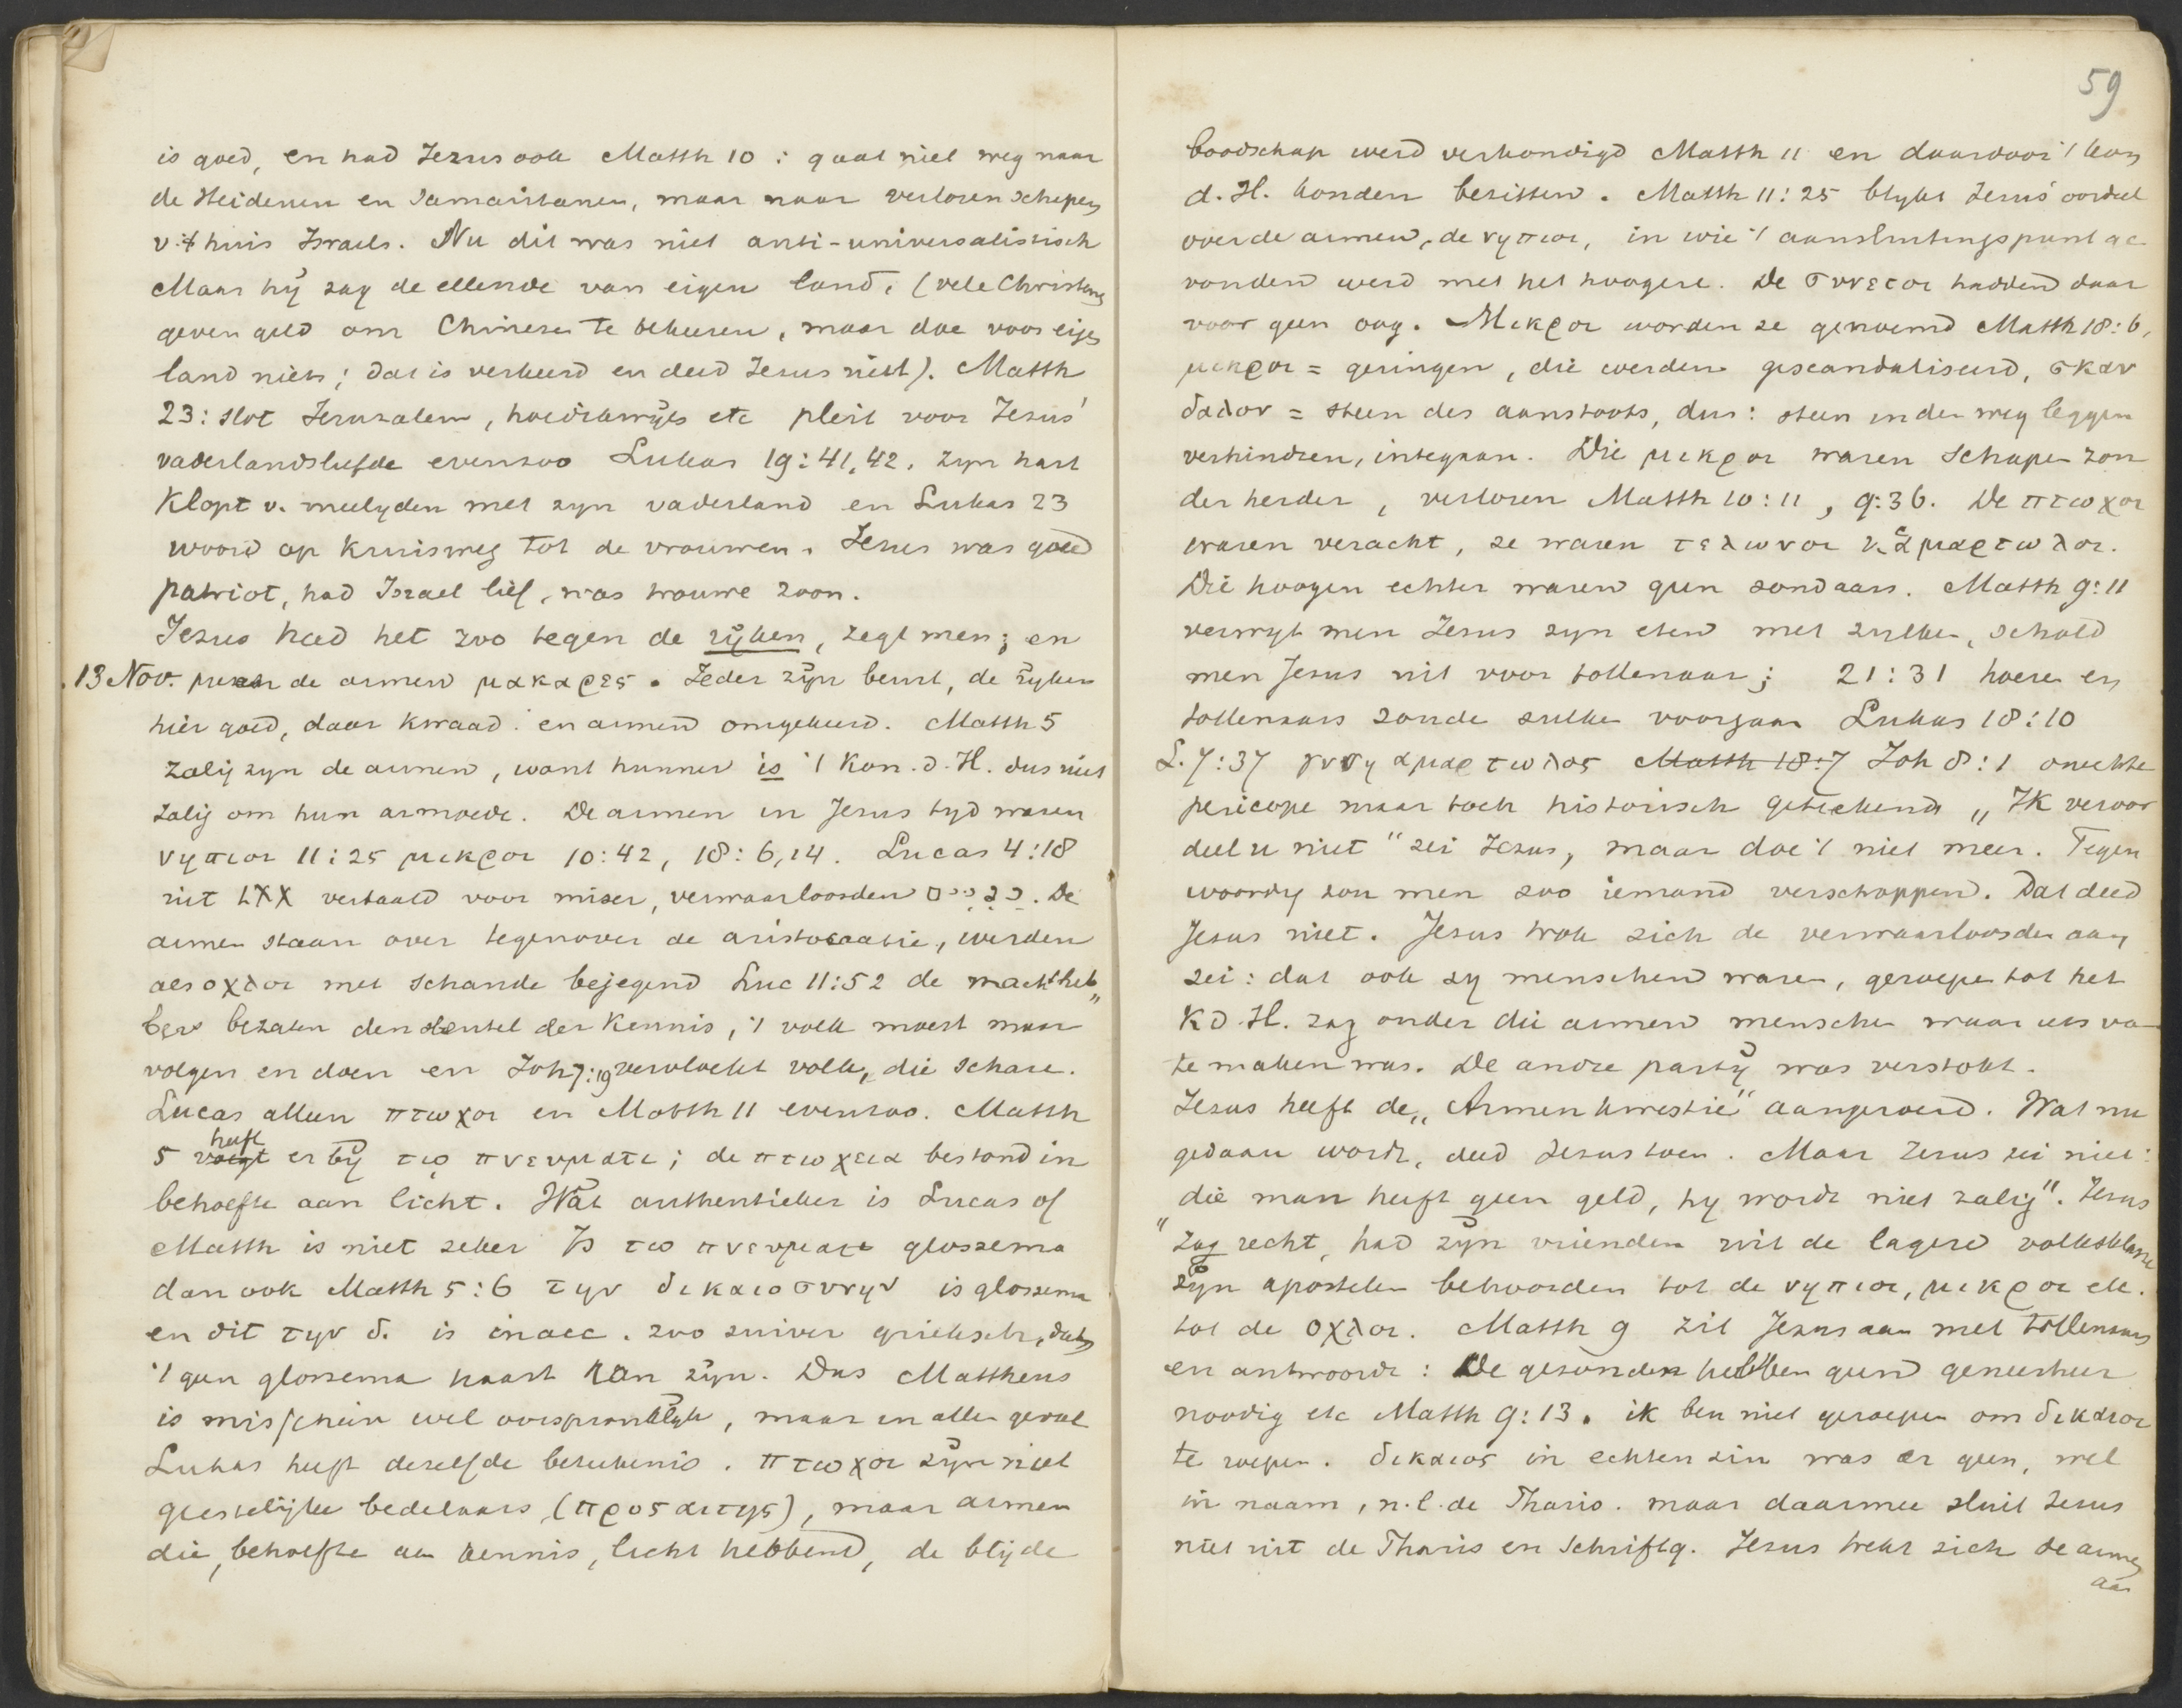 is goed, en had Jezus ook Matth 10: gaat niet weg naar
de Heidenen en Samaritanen, maar naar verloren schapen
v. 't huis Israels. Nu dit was niet anti-universalistisch
Maar hij zag de ellende van eigen land. (vele Christenen
geven geld om Chinezen te bekeeren, maar doe voor eigen
land niets; dat is verkeerd en deed Jezus niet). Matth
23: slot Jeruzalem, hoedikwijls etc pleit voor Jezus'
vaderlandsliefde evenzoo Lukas 19:41,42. Zijn hart
klopt v. meelijden met zijn vaderland en Lukas 23
woord op kruisweg tot de vrouwen. Jezus was goed
patriot, had Israel lief, was trouwe zoon.
Jezus had het zoo tegen de rijken, zegt men; en
13 Nov. de armen μακαρες. Ieder zijn beurt, de rijken
hier goed, daar kwaad: en armen omgekeerd. Matth 5
zalig zijn de armen, want hunner is 't Kon. d. H. dus niet
zalig om hun armoede. De armen in Jezus tijd waren
νηπιοι 11:25 μικροι 10:42, 18:6,14. Lucas 4:18
uit LXX vertaald voor miser, verwaarloosden. De
armen staan over tegenover de aristocratie, werden
als οχλοι met schande bejegend Luc 11:52 de machtheb„
bers bezaten den sleutel der kennis, 't volk moest maar
volgen en doen en Joh 7:19 vervloekt volk, die schare.
Lucas alleen πτωχοι en Matth 11 evenzoo. Matth
5 voegt heeft er bij τῳ πνευματι; de πτωχεια bestond in
behoefte aan licht. Wat authentieker is Lucas of
Matth is niet zeker Is τῳ πνευματι glossema
dan ook Matth 5:6 την δικαιοσυνην is glossema
en dit την δ. is in acc. zoo zuiver grieksch, dat
't geen glossema haast kan zijn. Dus Mattheus
is misschien wel oorspronklijk, maar in alle geval
Lukas heeft dezelfde beteekenis. πτωχοι zijn niet
geestelijke bedelaars (προσαιτης), maar armen
die, behoefte aan kennis, licht hebbend, de blijde
59
boodschap werd verkondigd Matth 11 en daardoor 't kon
d. H. konden bezitten. Matth 11:25 blijkt Jezus' oordeel
over de armen, de νηπιοι, in wie 't aansluitingspunt ge
vonden werd met het hoogere. De συνετοι hadden daar
voor geen oog. Μικροι worden ze genoemd Matth 18:6,
μικροι = geringen, die werden gescandaliseerd, σκαν
δαλον = steen des aanstoots, dus: steen in den weg leggen
verhindren, intégaan. Die μικροι waren schapen zon
der herder, verloren Matth 10:11, 9:36. De πτωχοι
waren veracht, ze waren τελωνοι κ. ἁμαρτωλοι.
Die hoogen echter waren geen zondaars. Matth 9:11
verwijt men Jezus zijn eten met zulken, schold
men Jezus uit voor tollenaar; 21:31 hoeren en
tollenaars zonde zulke voorgaan Lukas 18:10
L. 7:37 γυνη αμαρτωλος Matth 18:7 Joh 8:1 onechte
pericope maar toch historisch geteekend „Ik veroor
deel u niet“ zei Jezus, maar doe 't niet meer. Tegen
woordig zou men zoo iemand verschoppen. Dat deed
Jezus niet. Jezus trok zich de verwaarloosden aan
zei: dat ook zij menschen waren, geroepen tot het
K d. H. zag onder die armen menschen waar iets van
te maken was. De andre partij was verstokt.
Jezus heeft de „Armenkwestie“ aangeroerd. Wat nu
gedaan wordt, deed Jezus toen. Maar Jezus zei niet:
„die man heeft geen geld, hij wordt niet zalig“. Jezus
zag recht, had zijn vrienden uit de lagere volksklasse
zijn apostelen behoorden tot de νηπιοι, μικροι etc.
tot de οχλοι. Matth 9 zit Jezus aan met tollenaars
en antwoordt: De gezonden hebben geen geneesheer
noodig etc Matth 9:13. ik ben niet geroepen om δικαιοι
te roepen. δικαιος in echten zin was er geen, wel
in naam, n.l. de Phariz. maar daarmee sluit Jezus
niet uit de Phariz en Schriftg. Jezus trekt zich de armen
aan